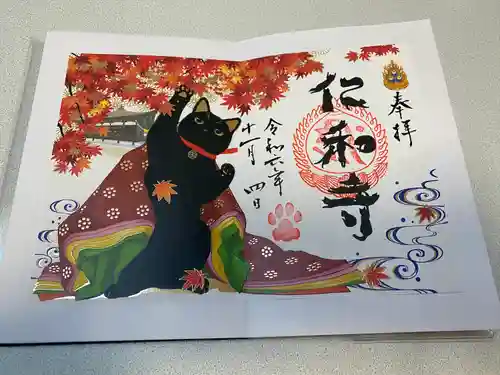 奉拝
仁和寺
令和六年
十一月四日